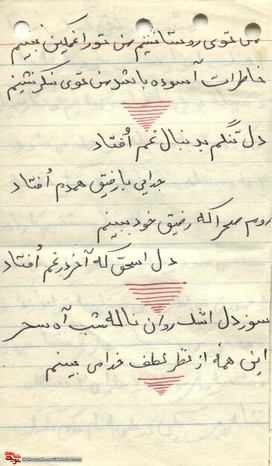 من توی روستا نشینم من تو را غمگین نبینم
خاطرات آسوده باشد من توی سنگر نشینم
دل تنگم به دنبال غم اُفتاد
جدایی با رفیق همدم اُفتاد
روم صحرا که رفیق خود ببینم
دل احمق که آخر در غم اُفتاد
سوز دل اشک روان ناله شب آه سحر
این همه از نظر لطف خدا می بینم